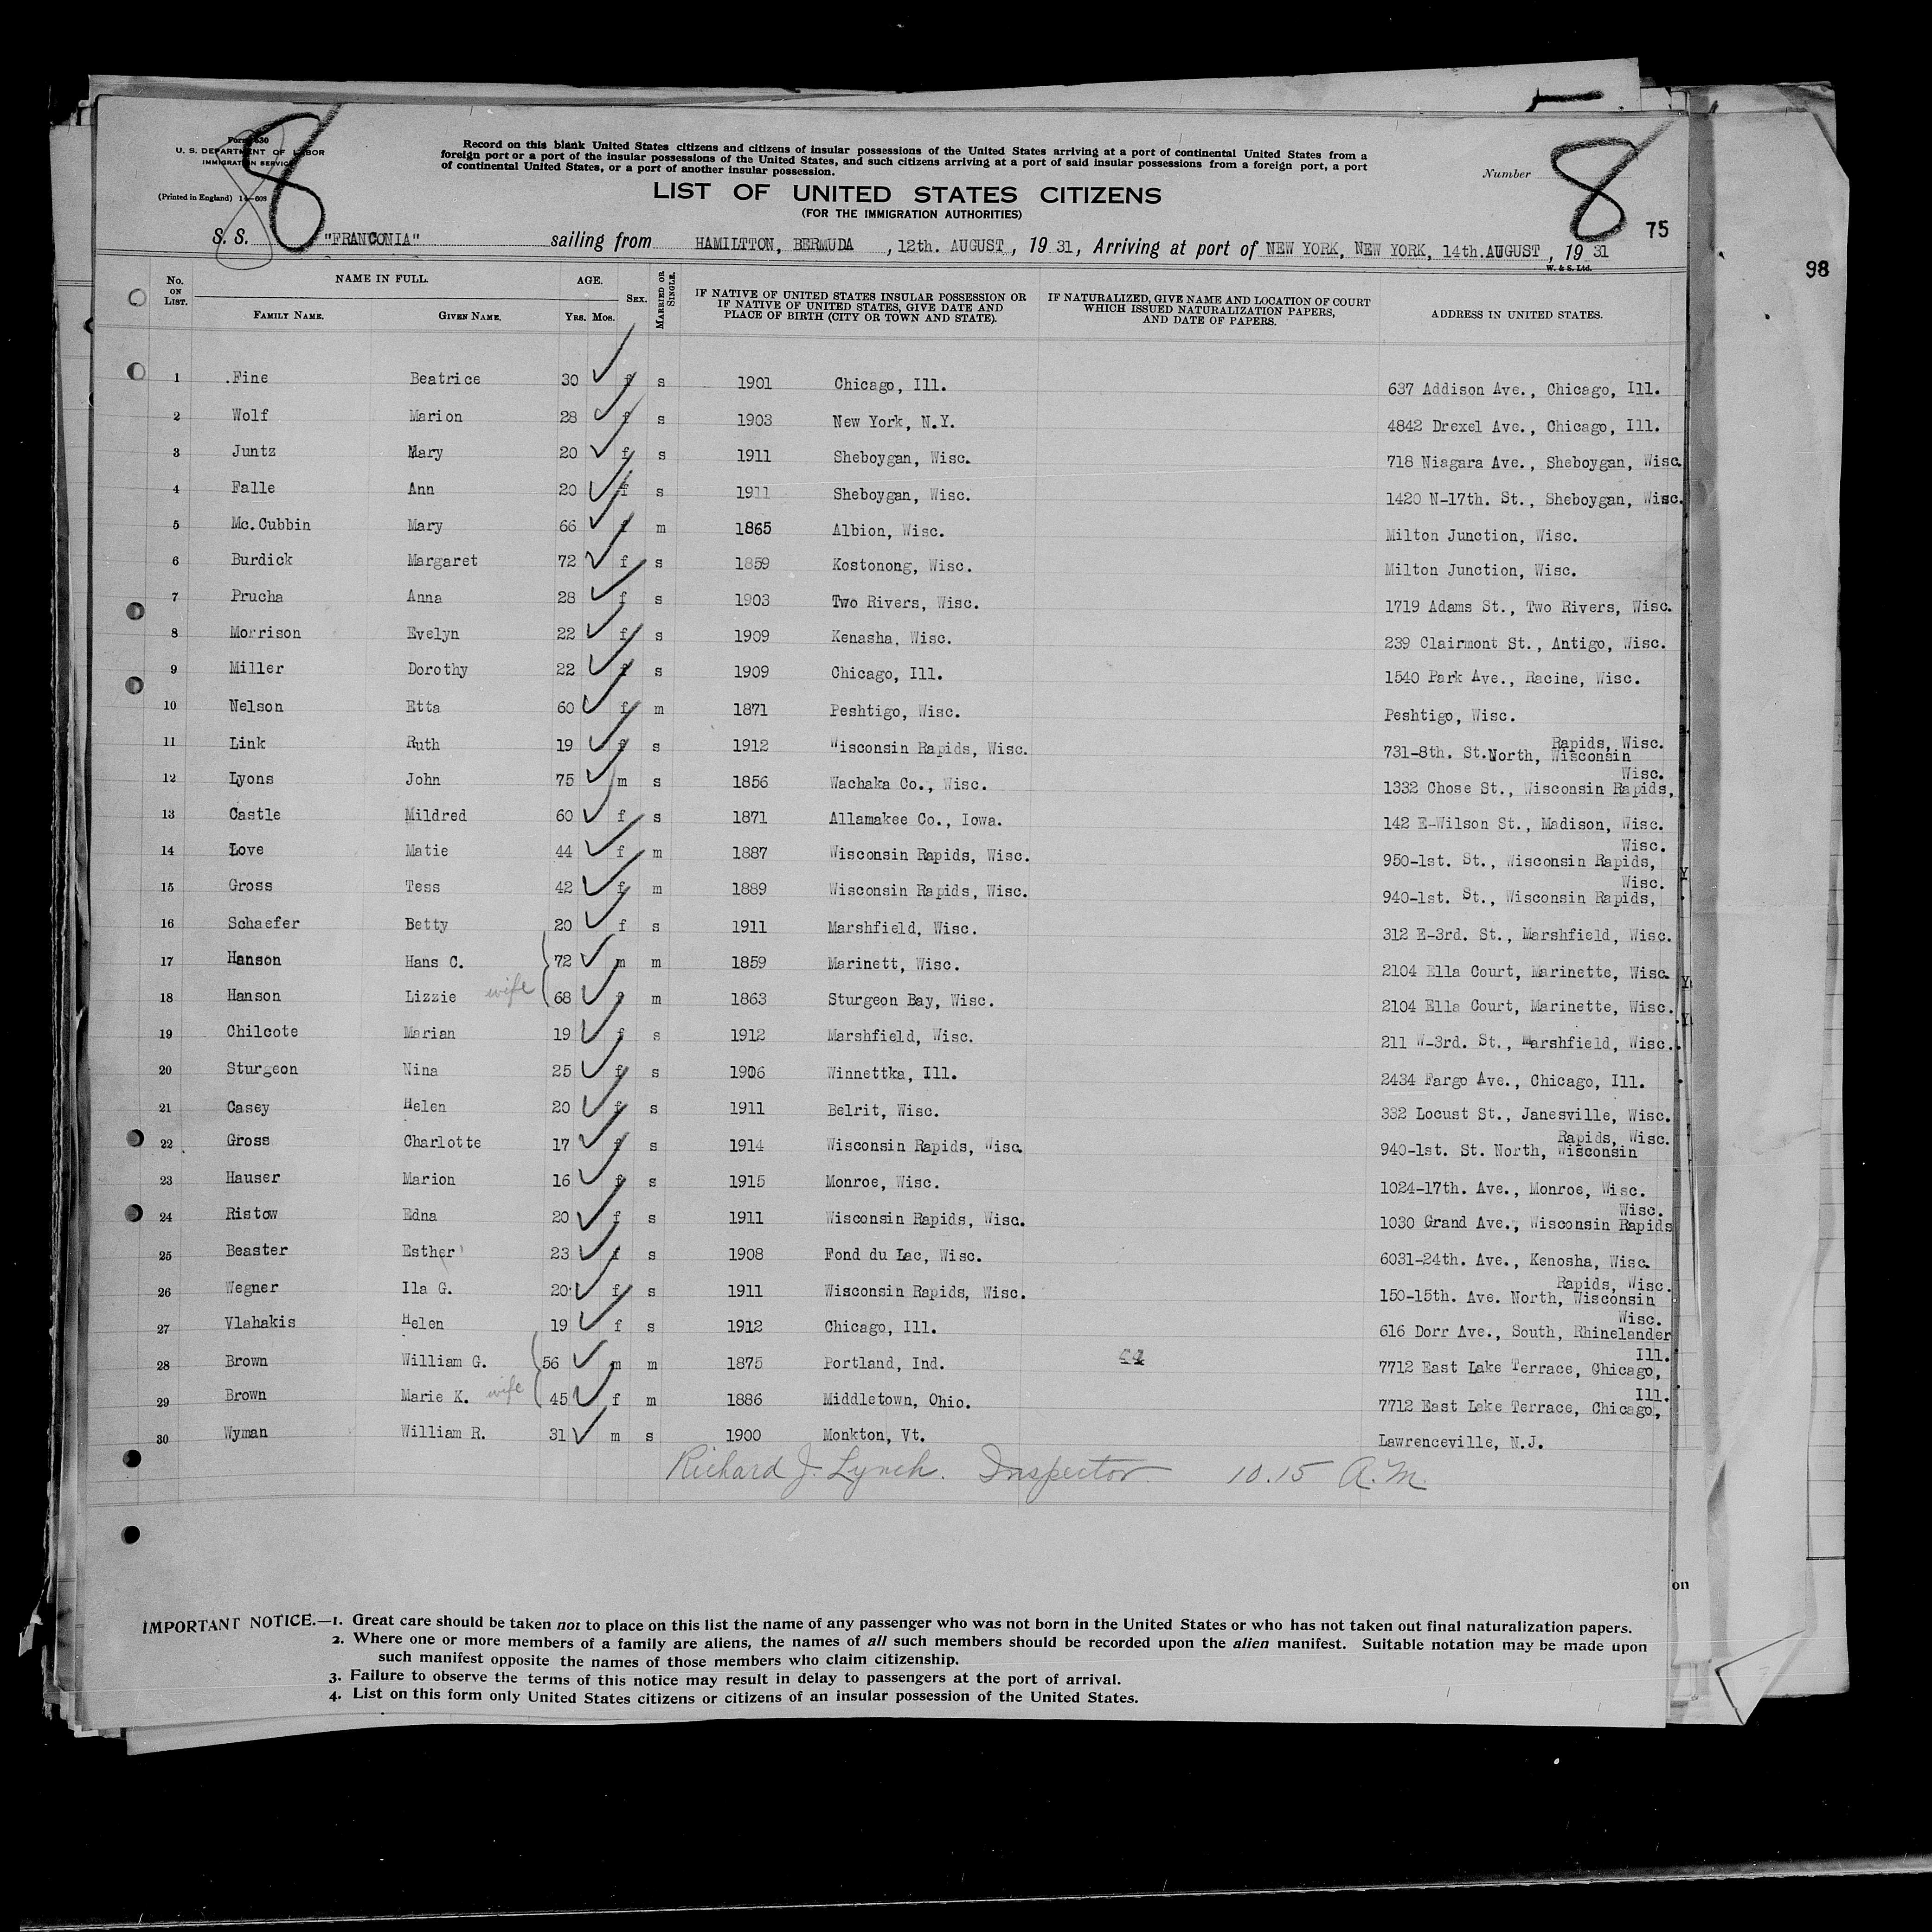 8
Form 630
U. S. DEPARTMENT OF LABOR
IMMIGRATION SERVICE
(Printed in England) 14-608
Record on this blank United States citizens and citizens of insular possessions of the United States arriving at a port of continental United States from a
foreign port or a port of the insular possessions of the United States, and such citizens arriving at a port of said insular possessions from a foreign port, a port
of continental United States, or a port of another insular possession.
Number 8
LIST OF UNITED STATES CITIZENS
(FOR THE IMMIGRATION AUTHORITIES)
75
S. S. "FRANCONIA" sailing from HAMILTTON, BERMUDA, 12th. AUGUST, 19 31, Arriving at port of NEW YORK, NEW YORK, 14th.AUGUST, 19 31
W. & S. Ltd.
98
No. ON LIST. NAME IN FULL. FAMILY NAME. GIVEN NAME. AGE. YRS. MOS. SEX. MARRIED OR SINGLE. IF NATIVE OF UNITED STATES INSULAR POSSESSION OR IF NATIVE OF UNITED STATES, GIVE DATE AND PLACE OF BIRTH (CITY OR TOWN AND STATE). IF NATURALIZED, GIVE NAME AND LOCATION OF COURT WHICH ISSUED NATURALIZATION PAPERS, AND DATE OF PAPERS. ADDRESS IN UNITED STATES.
1 Fine Beatrice 30 f s 1901 Chicago, Ill. 637 Addison Ave., Chicago, Ill.
2 Wolf Marion 28 f s 1903 New York, N.Y. 4842 Drexel Ave., Chicago, Ill.
3 Juntz Mary 20 f s 1911 Sheboygan, Wisc. 718 Niagara Ave., Sheboygan, Wisc.
4 Falle Ann 20 f s 1911 Sheboygan, Wisc. 1420 N-17th. St., Sheboygan, Wisc.
5 Mc.Cubbin Mary 66 f m 1865 Albion, Wisc. Milton Junction, Wisc.
6 Burdick Margaret 72 f s 1859 Kostonong, Wisc. Milton Junction, Wisc.
7 Prucha Anna 28 f s 1903 Two Rivers, Wisc. 1719 Adams St., Two Rivers, Wisc.
8 Morrison Evelyn 22 f s 1909 Kenasha, Wisc. 239 Clairmont St., Antigo, Wisc.
9 Miller Dorothy 22 f s 1909 Chicago, Ill. 1540 Park Ave., Racine, Wisc.
10 Nelson Etta 60 f m 1871 Peshtigo, Wisc. Peshtigo, Wisc.
11 Link Ruth 19 f s 1912 Wisconsin Rapids, Wisc. 731-8th. St.North, Wisconsin Rapids, Wisc.
12 Lyons John 75 m s 1856 Wachaka Co., Wisc. 1332 Chose St., Wisconsin Rapids, Wisc.
13 Castle Mildred 60 f s 1871 Allamakee Co., Iowa. 142 E-Wilson St., Madison, Wisc.
14 Love Matie 44 f m 1887 Wisconsin Rapids, Wisc. 950-1st. St., Wisconsin Rapids, Wisc.
15 Gross Tess 42 f m 1889 Wisconsin Rapids, Wisc. 940-1st. St., Wisconsin Rapids, Wisc.
16 Schaefer Betty 20 f s 1911 Marshfield, Wisc. 312 E-3rd. St., Marshfield, Wisc.
17 Hanson Hans C. 72 m m 1859 Marinett, Wisc. 2104 Ella Court, Marinette, Wisc.
18 Hanson Lizzie wife 68 f m 1863 Sturgeon Bay, Wisc. 2104 Ella Court, Marinette, Wisc.
19 Chilcote Marian 19 f s 1912 Marshfield, Wisc. 211 W-3rd. St., Marshfield, Wisc.
20 Sturgeon Nina 25 f s 1906 Winnettka, Ill. 2434 Fargo Ave., Chicago, Ill.
21 Casey Helen 20 f s 1911 Belrit, Wisc. 332 Locust St., Janesville, Wisc.
22 Gross Charlotte 17 f s 1914 Wisconsin Rapids, Wisc. 940-1st. St. North, Wisconsin Rapids, Wisc.
23 Hauser Marion 16 f s 1915 Monroe, Wisc. 1024-17th. Ave., Monroe, Wisc.
24 Ristow Edna 20 f s 1911 Wisconsin Rapids, Wisc. 1030 Grand Ave., Wisconsin Rapids Wisc.
25 Beaster Esther 23 f s 1908 Fond du Lac, Wisc. 6031-24th. Ave., Kenosha, Wisc.
26 Wegner Ila G. 20 f s 1911 Wisconsin Rapids, Wisc. 150-15th. Ave. North, Wisconsin Rapids, Wisc.
27 Vlahakis Helen 19 f s 1912 Chicago, Ill. 616 Dorr Ave., South, Rhinelander Wisc.
28 Brown William G. 56 m m 1875 Portland, Ind. 7712 East Lake Terrace, Chicago, Ill.
29 Brown Marie K. wife 45 f m 1886 Middletown, Ohio. 7712 East Lake Terrace, Chicago, Ill.
30 Wyman William R. 31 m s 1900 Monkton, Vt. Lawrenceville, N.J.
Richard J. Lynch. Inspector 10.15 A.M.
on
IMPORTANT NOTICE.—1. Great care should be taken not to place on this list the name of any passenger who was not born in the United States or who has not taken out final naturalization papers.
2. Where one or more members of a family are aliens, the names of all such members should be recorded upon the alien manifest. Suitable notation may be made upon
such manifest opposite the names of those members who claim citizenship.
3. Failure to observe the terms of this notice may result in delay to passengers at the port of arrival.
4. List on this form only United States citizens or citizens of an insular possession of the United States.